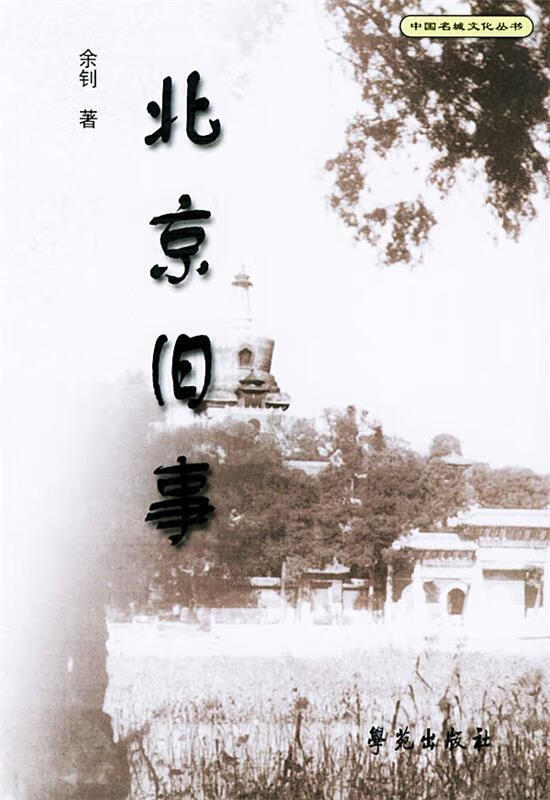 中国名城文化丛书
余钊 著
北京旧事
學苑出版社